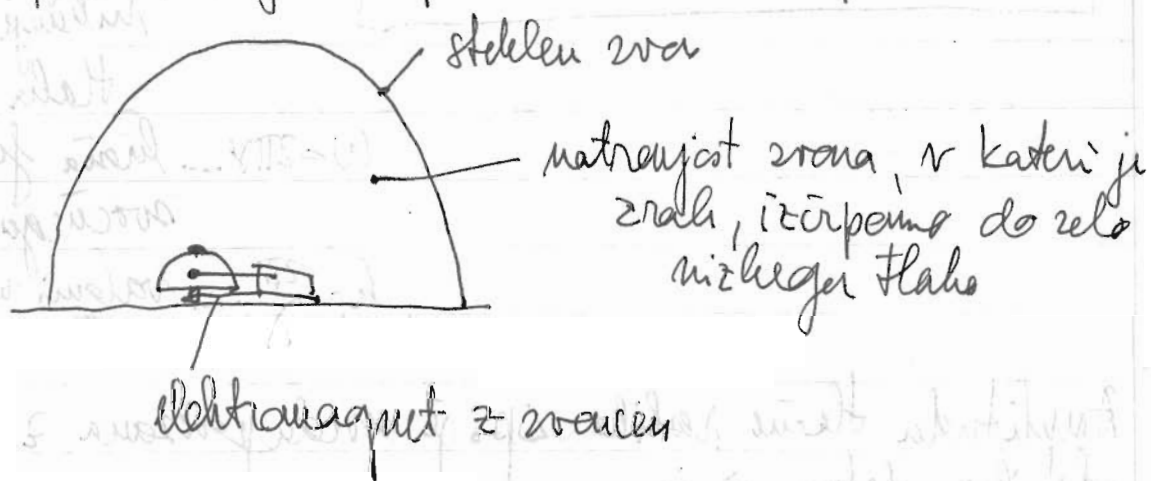 steklen zvon
notranjost zvona, v kateri je
zrak, izčrpamo do zelo
nizkega tlaka
elektromagnet z zvoncem